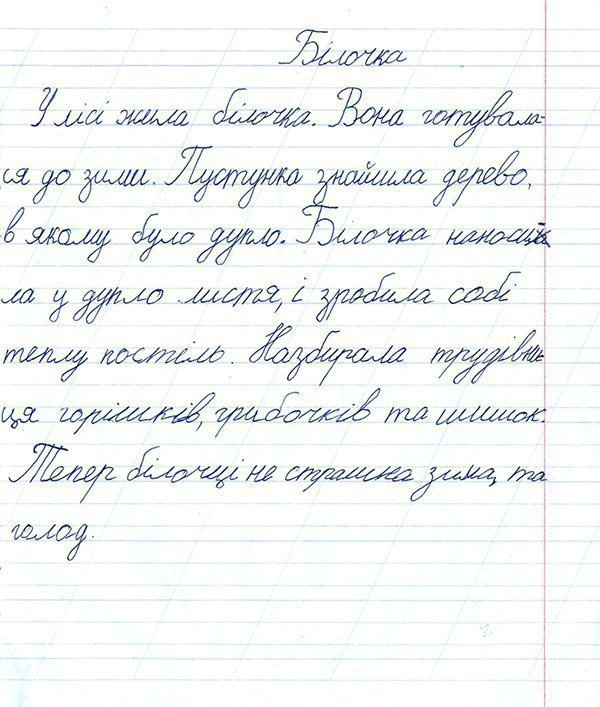 Білочка
У лісі жила білочка. Вона готувала-
ся до зими. Пустунка знайшла дерево,
в якому було дупло. Білочка наноси
ла у дупло листя, і зробила собі
теплу постіль. Назбирала трудівни-
ця горішків, грибочків та шишок.
Тепер білочці не страшна зима, та
голод.